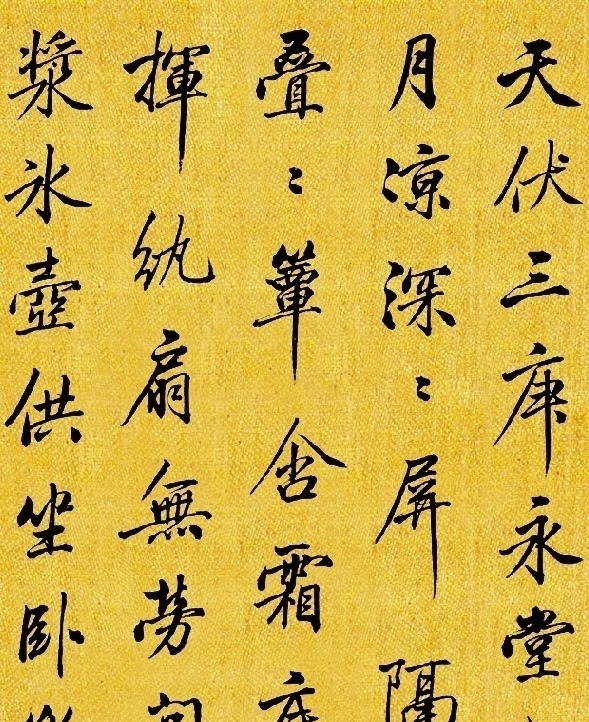 天伏三庚永堂
月凉深〻屏隔
疊〻簟含霜
揮紈扇無勞
漿冰壺供坐卧